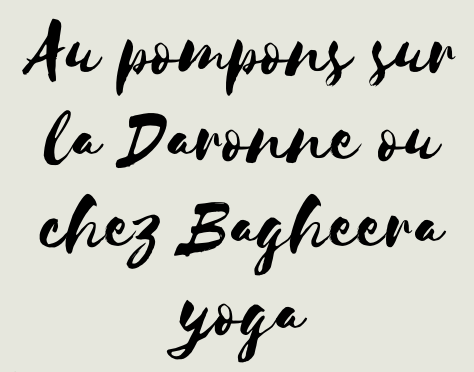 Au pompons sur
la Daronne ou
chez Bagheera
yoga